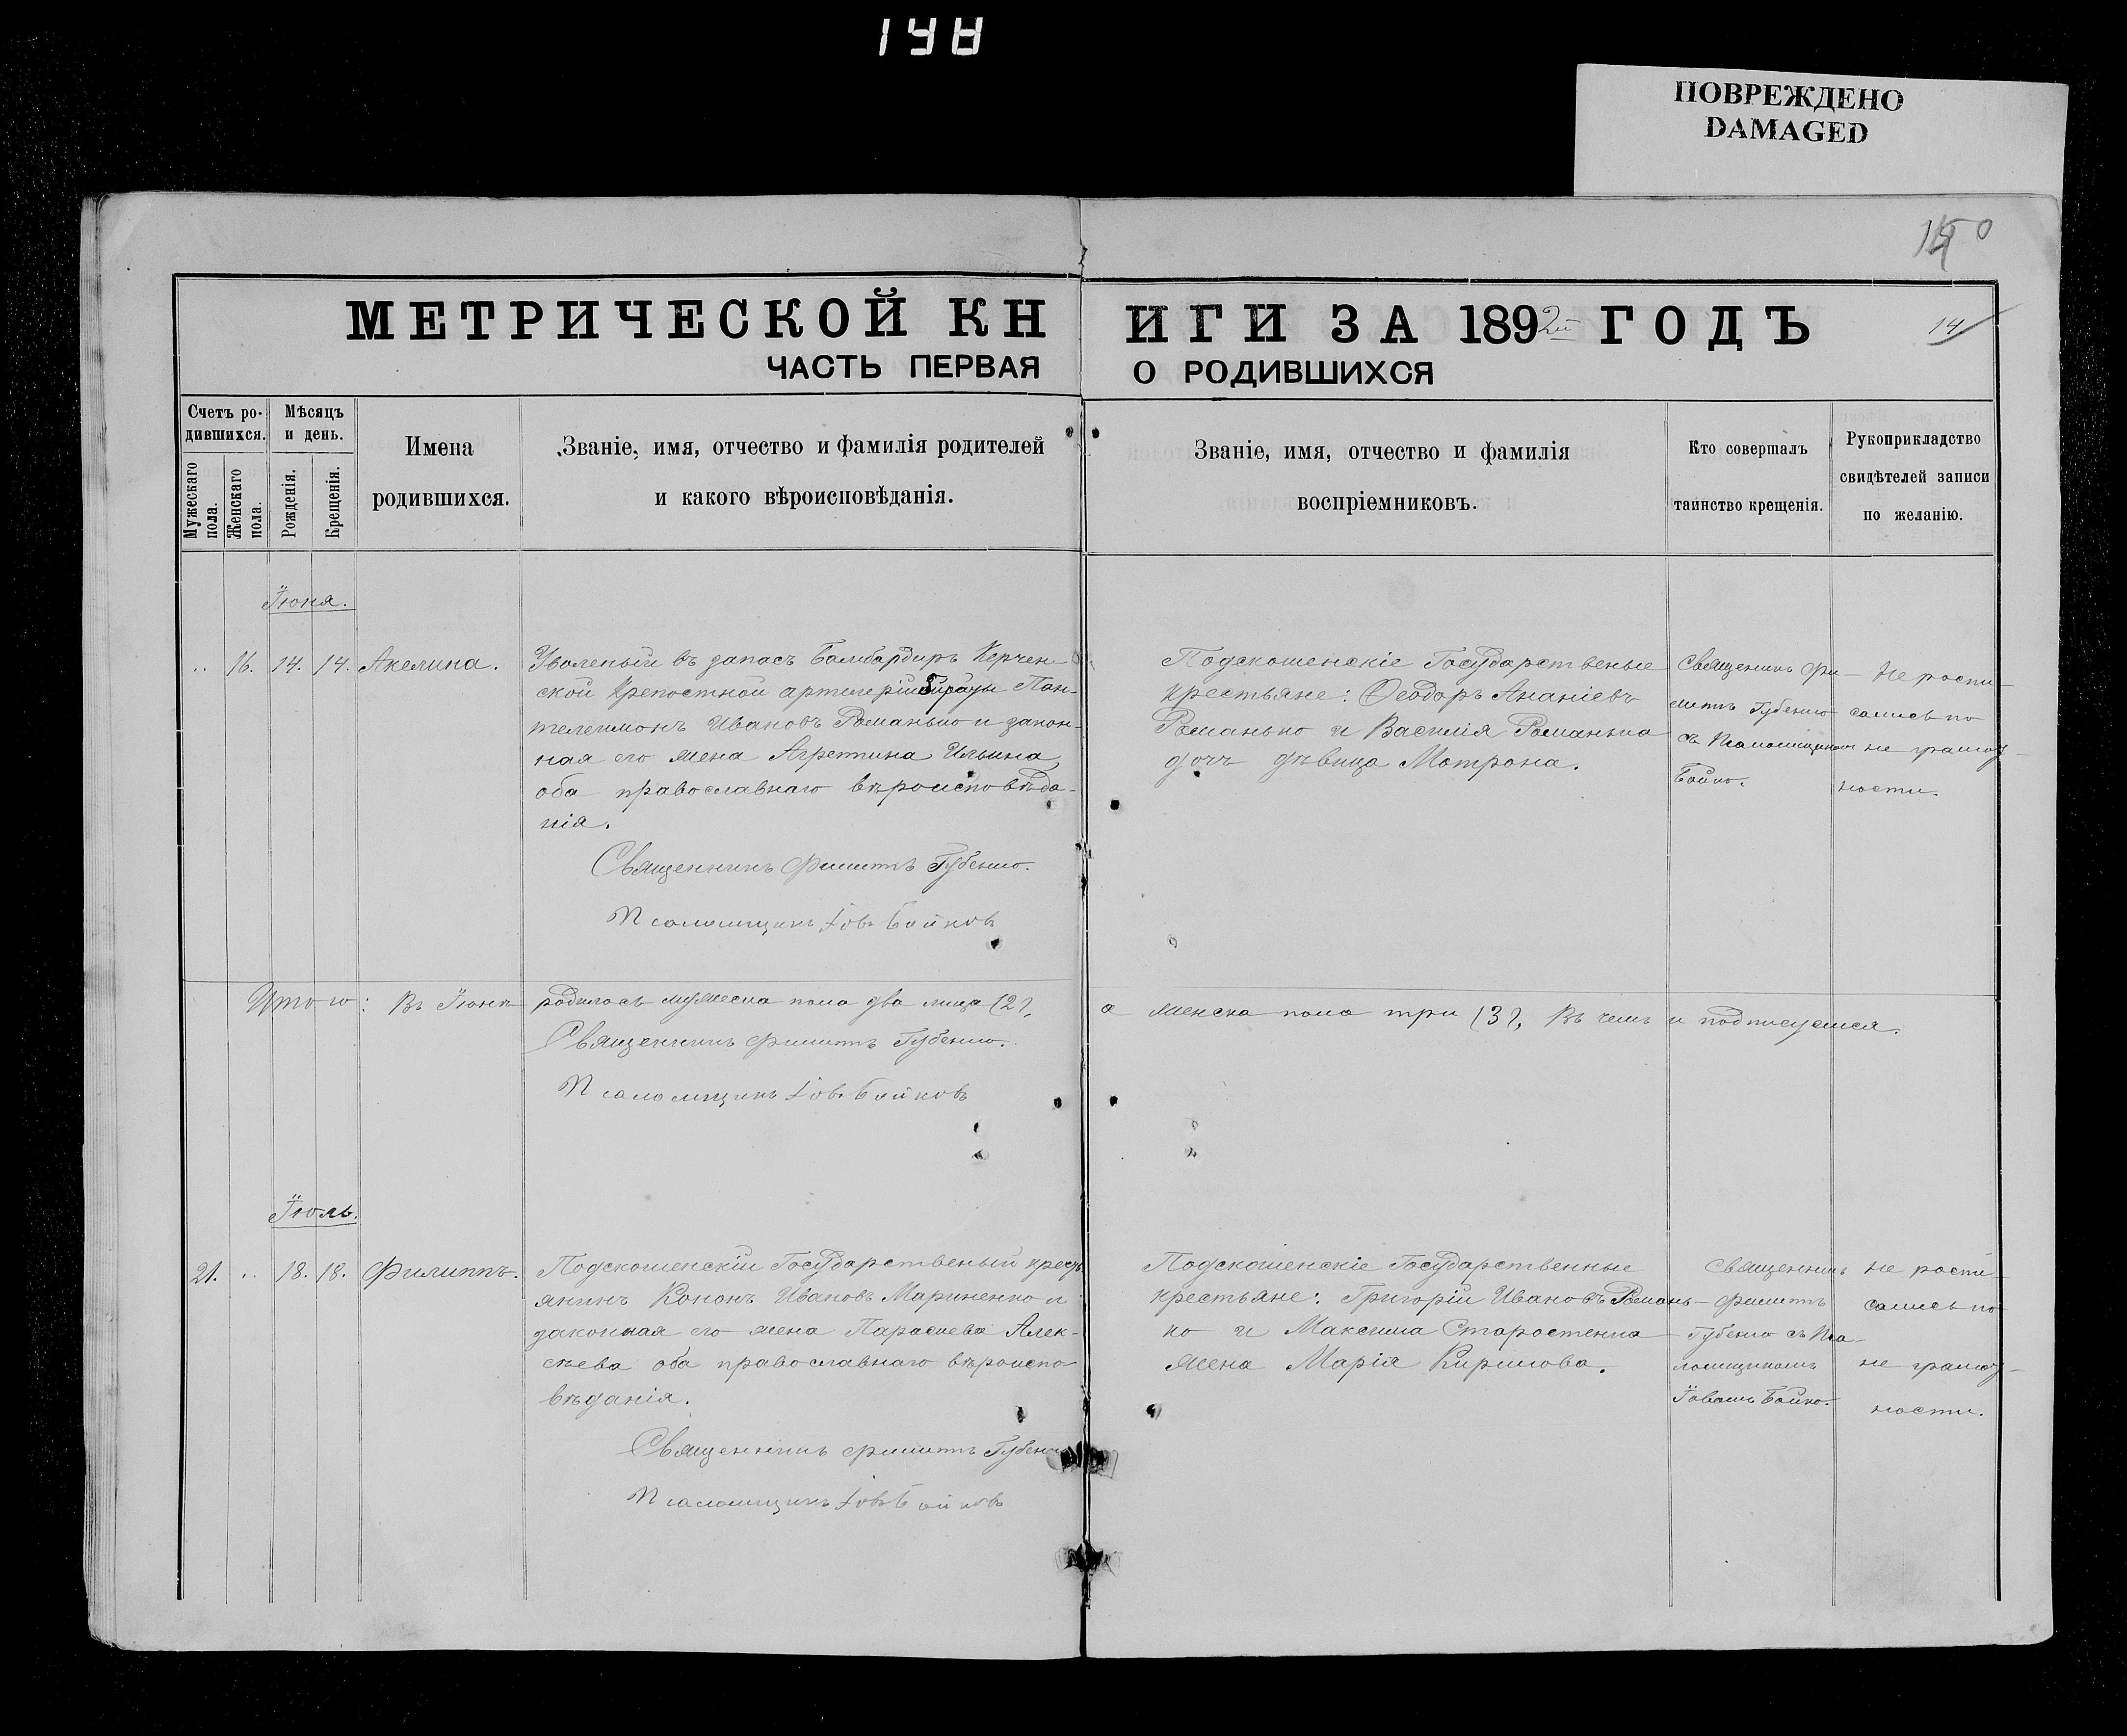 198
ПОВРЕЖДЕНО
DAMAGED
150
МЕТРИЧЕСКОЙ КНИГИ ЗА 1892й ГОДЪ
14
ЧАСТЬ ПЕРВАЯ О РОДИВШИХСЯ
Счетъ ро-
дившихся.
Мужескаго пола.
Женскаго пола.
Мѣсяцъ
и день.
Рожденія.
Крещенія.
Имена
родившихся.
Званіе, имя, отчество и фамилія родителей
и какого вѣроисповѣданія.
Званіе, имя, отчество и фамилія
воспріемниковъ.
Кто совершалъ
таинство крещенія.
Рукоприкладство
свидѣтелей записи
по желанію.
Їюня.
.. 16. 14. 14. Акелина.
Уволеный въ запасъ Бомбардиръ Керчен-
ской Крепостной артилеріи Пан-
телеимонъ Ивановъ Романько и закон-
ная его жена Агрепина Ильина,
оба православнаго вѣроисповѣда-
нія.
Священникъ Филиппъ Губенко.
Псаломщикъ Їовъ Бойковъ
Подскошенскіе Государственые
крестьяне: Ѳеодоръ Ананіевъ
Романько и Василія Романька
дочь дѣвица Мотрона.
Священикъ Фи-
липпъ Губенко
съ Псаломщикомъ
Бойко.
Не роспи-
сались по
не грамот-
ности.
Итого: Въ Їюнѣ родилось мужеска пола два лица (2), а женска пола три (3), Въ чемъ и подписуемся.
Священникъ Филиппъ Губенко.
Псаломщикъ Їовъ Бойковъ
Їюль.
21. .. 18. 18. Филиппъ.
Подскошенскій Государственый крестъ
янинъ Кононъ Ивановъ Мариненко и
законная его жена Параскева Алек-
сѣева оба православнаго вѣроиспо-
вѣданія.
Священникъ Филиппъ Губенко
Псаломщикъ Їовъ Бойковъ
Подскошенскіе Государственные
крестьяне: Григорій Ивановъ Романь-
ко и Максима Старостенка
жена Марія Кирилова.
Священникъ
Филиппъ
Губенко съ Пса-
ломщикомъ
Їовомъ Бойко.
не роспи-
сались по
не грамот-
ности.